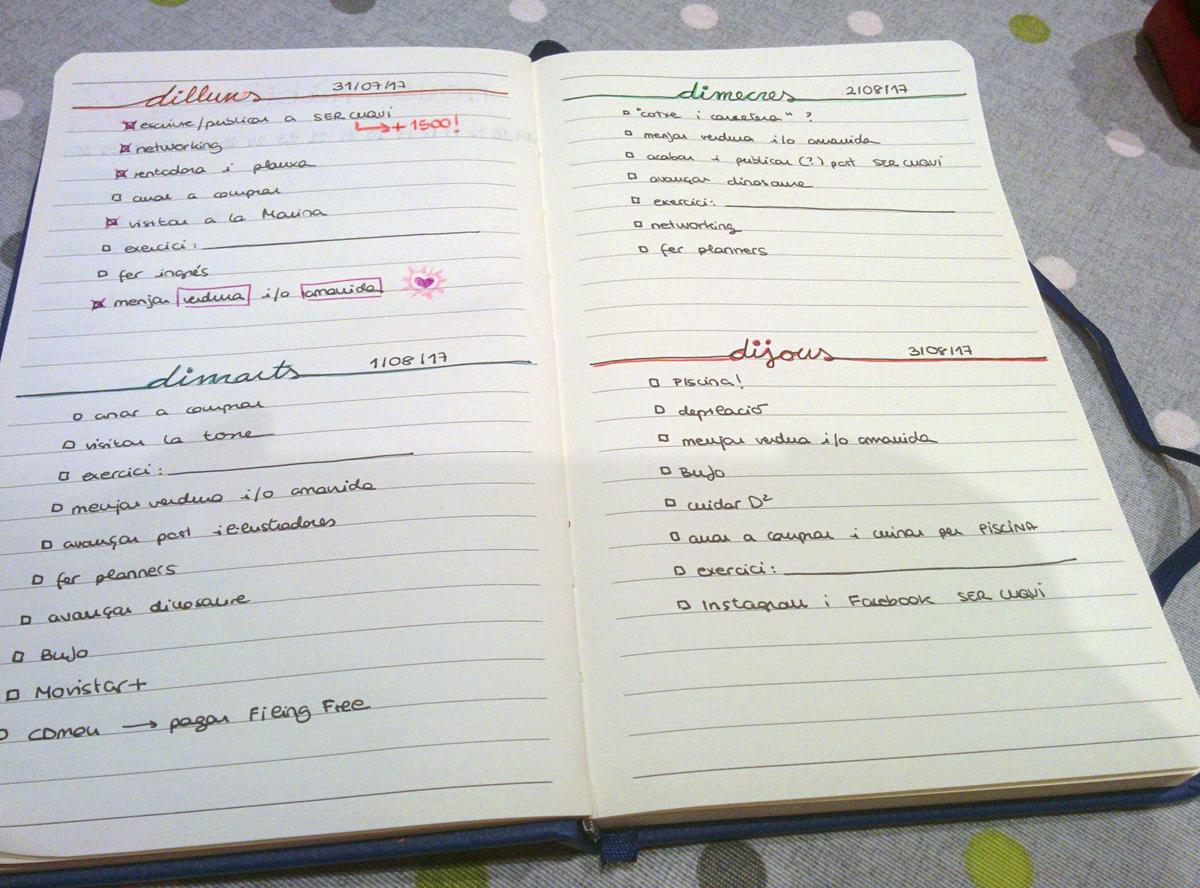 dilluns 31/07/17
escriure/publicar a SER CUQUI
→ + 1500!
networking
rentadora i planxa
anar a comprar
visitar a la Marina
exercici:
fer ingrés
menjar verdura i/o amanida
dimarts 1/08/17
anar a comprar
visitar la torre
exercici:
menjar verdura i/o amanida
avançar post il·lustradores
fer planners
avançar dinosaure
BuJo
Movistar+
CDmeu → pagar Filing Free
dimecres 2/08/17
"cotxe i carretera" ?
menjar verdura i/o amanida
acabar i publicar (?) post SER CUQUI
avançar dinosaure
exercici:
networking
fer planners
dijous 3/08/17
PISCINA!
depilació
menjar verdura i/o amanida
BuJo
cuidar D²
anar a comprar i cuinar per PISCINA
exercici:
Instagram i Facebook SER CUQUI